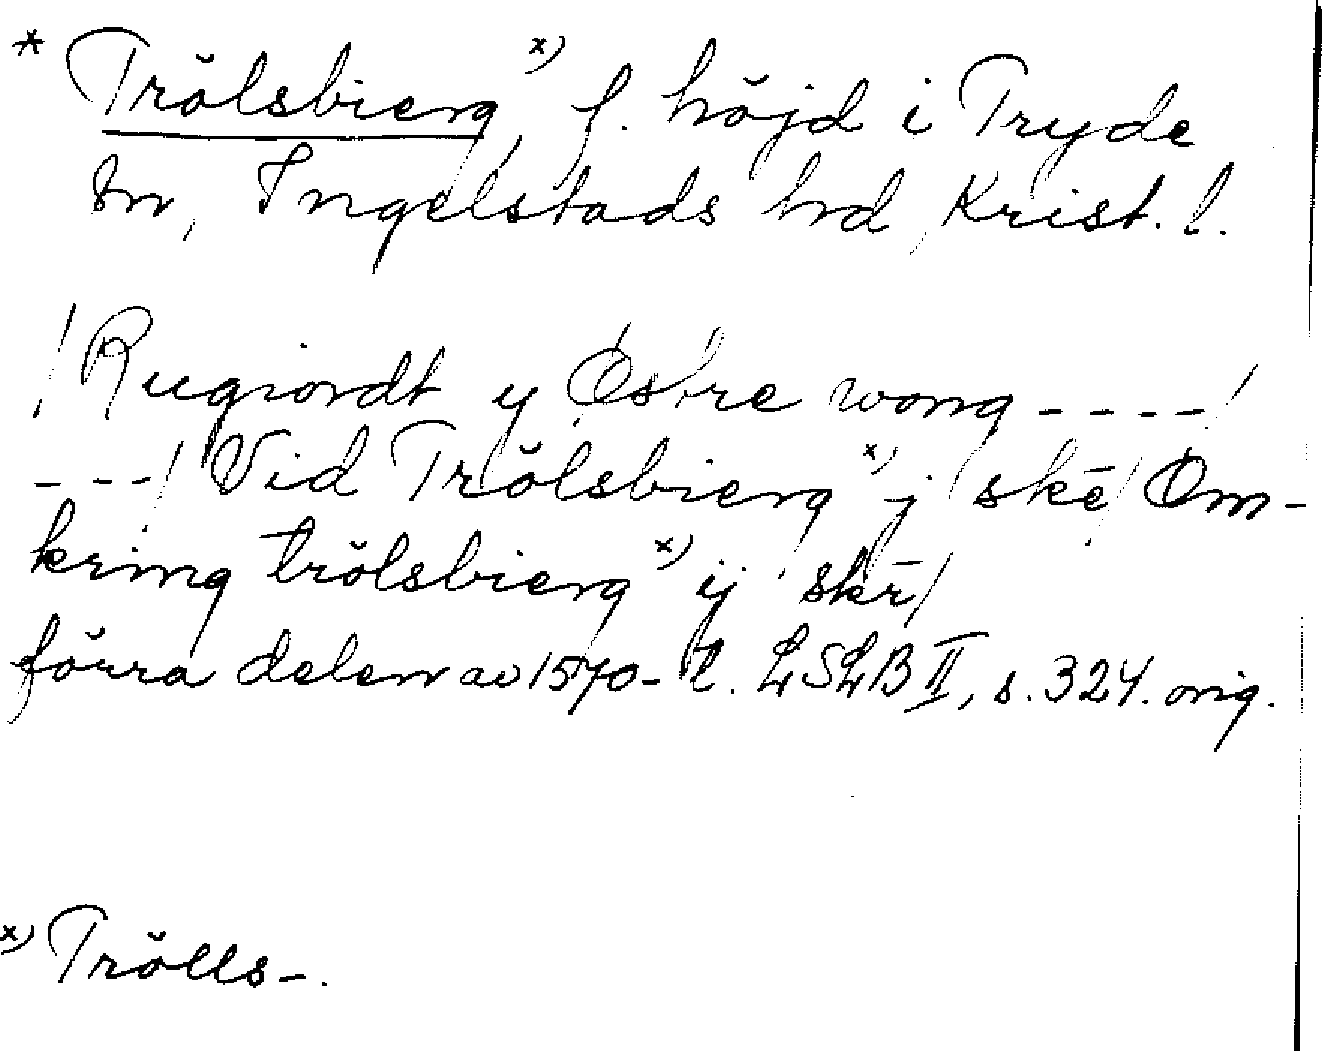 * Trölsbierg x), f. höjd i Tryde
sn, Ingelstads hd, Krist. l.
/ Rugiordt y Östre wong ---- /
--- / Vid Trölsbierg x) j skē / Om-
kring trölsbierg x) ij skē /
förra delen av 1570-t. LSLB II, s. 324. orig.
x) Trölls-.